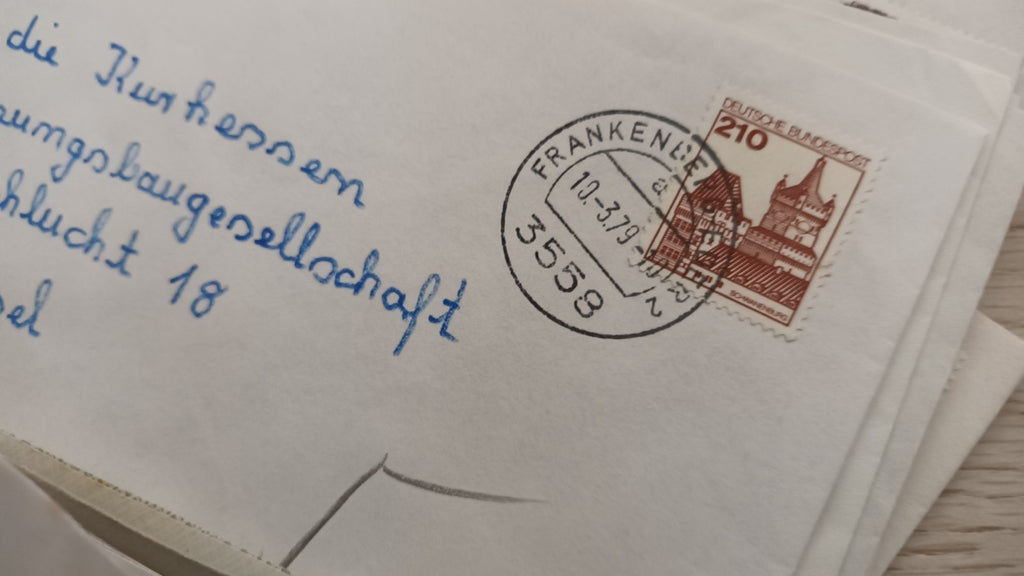 die Kurhessen
ungsbaugesellschaft
hlucht 18
el
FRANKENBE
a
10.-3.79
3558
2
DEUTSCHE BUNDESPOST
210